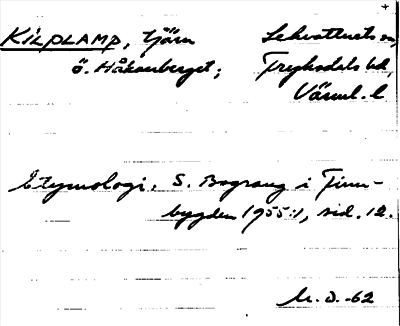 KILPLAMP, tjärn Lekvattnets sn,
ö. Håkanberget; Fryksdals hd,
Värml. l.
Etymologi, S. Bograng i Finn-
bygden 1955:1, sid. 12.
-62